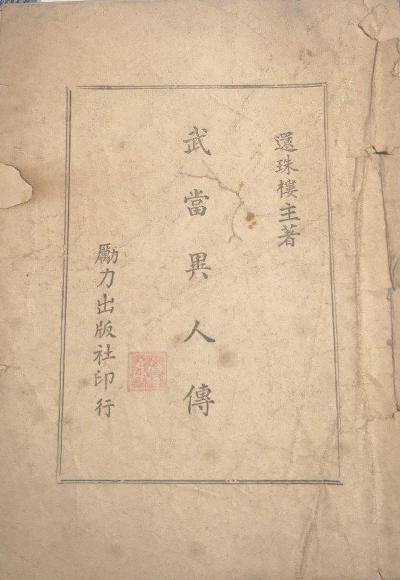 還珠樓主著
武當異人傳
勵力出版社印行